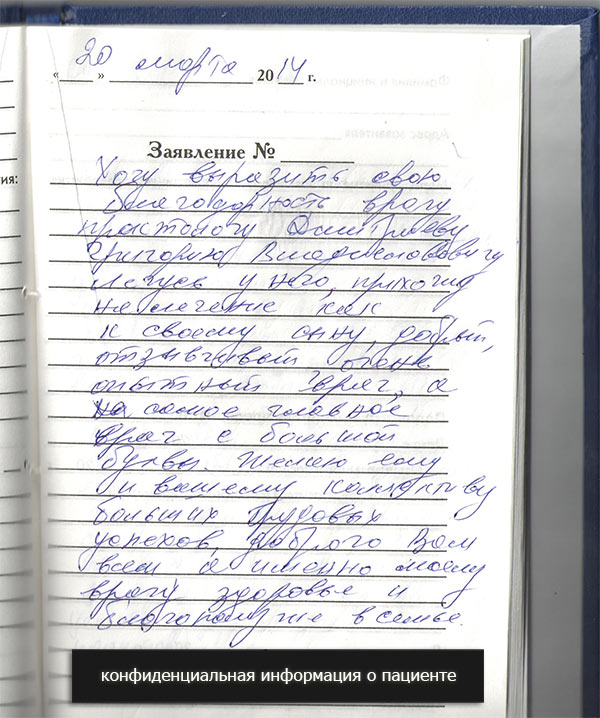 « 20 » марта 2014 г.
Заявление №
ия:
Хочу выразить свою
благодарность врачу
проктологу Дмитриеву
Григорию Владиславовичу
Лечусь у него, прихожу
на лечение как
к своему сыну, добрый,
отзывчивый очень
опытный врач, а
на самое главное
врач с большой
буквы. Желаю ему
и вашему коллективу
больших трудовых
успехов, доброго Вам
всем а именно моему
врачу здоровье и
благополучие в семье.
конфиденциальная информация о пациенте